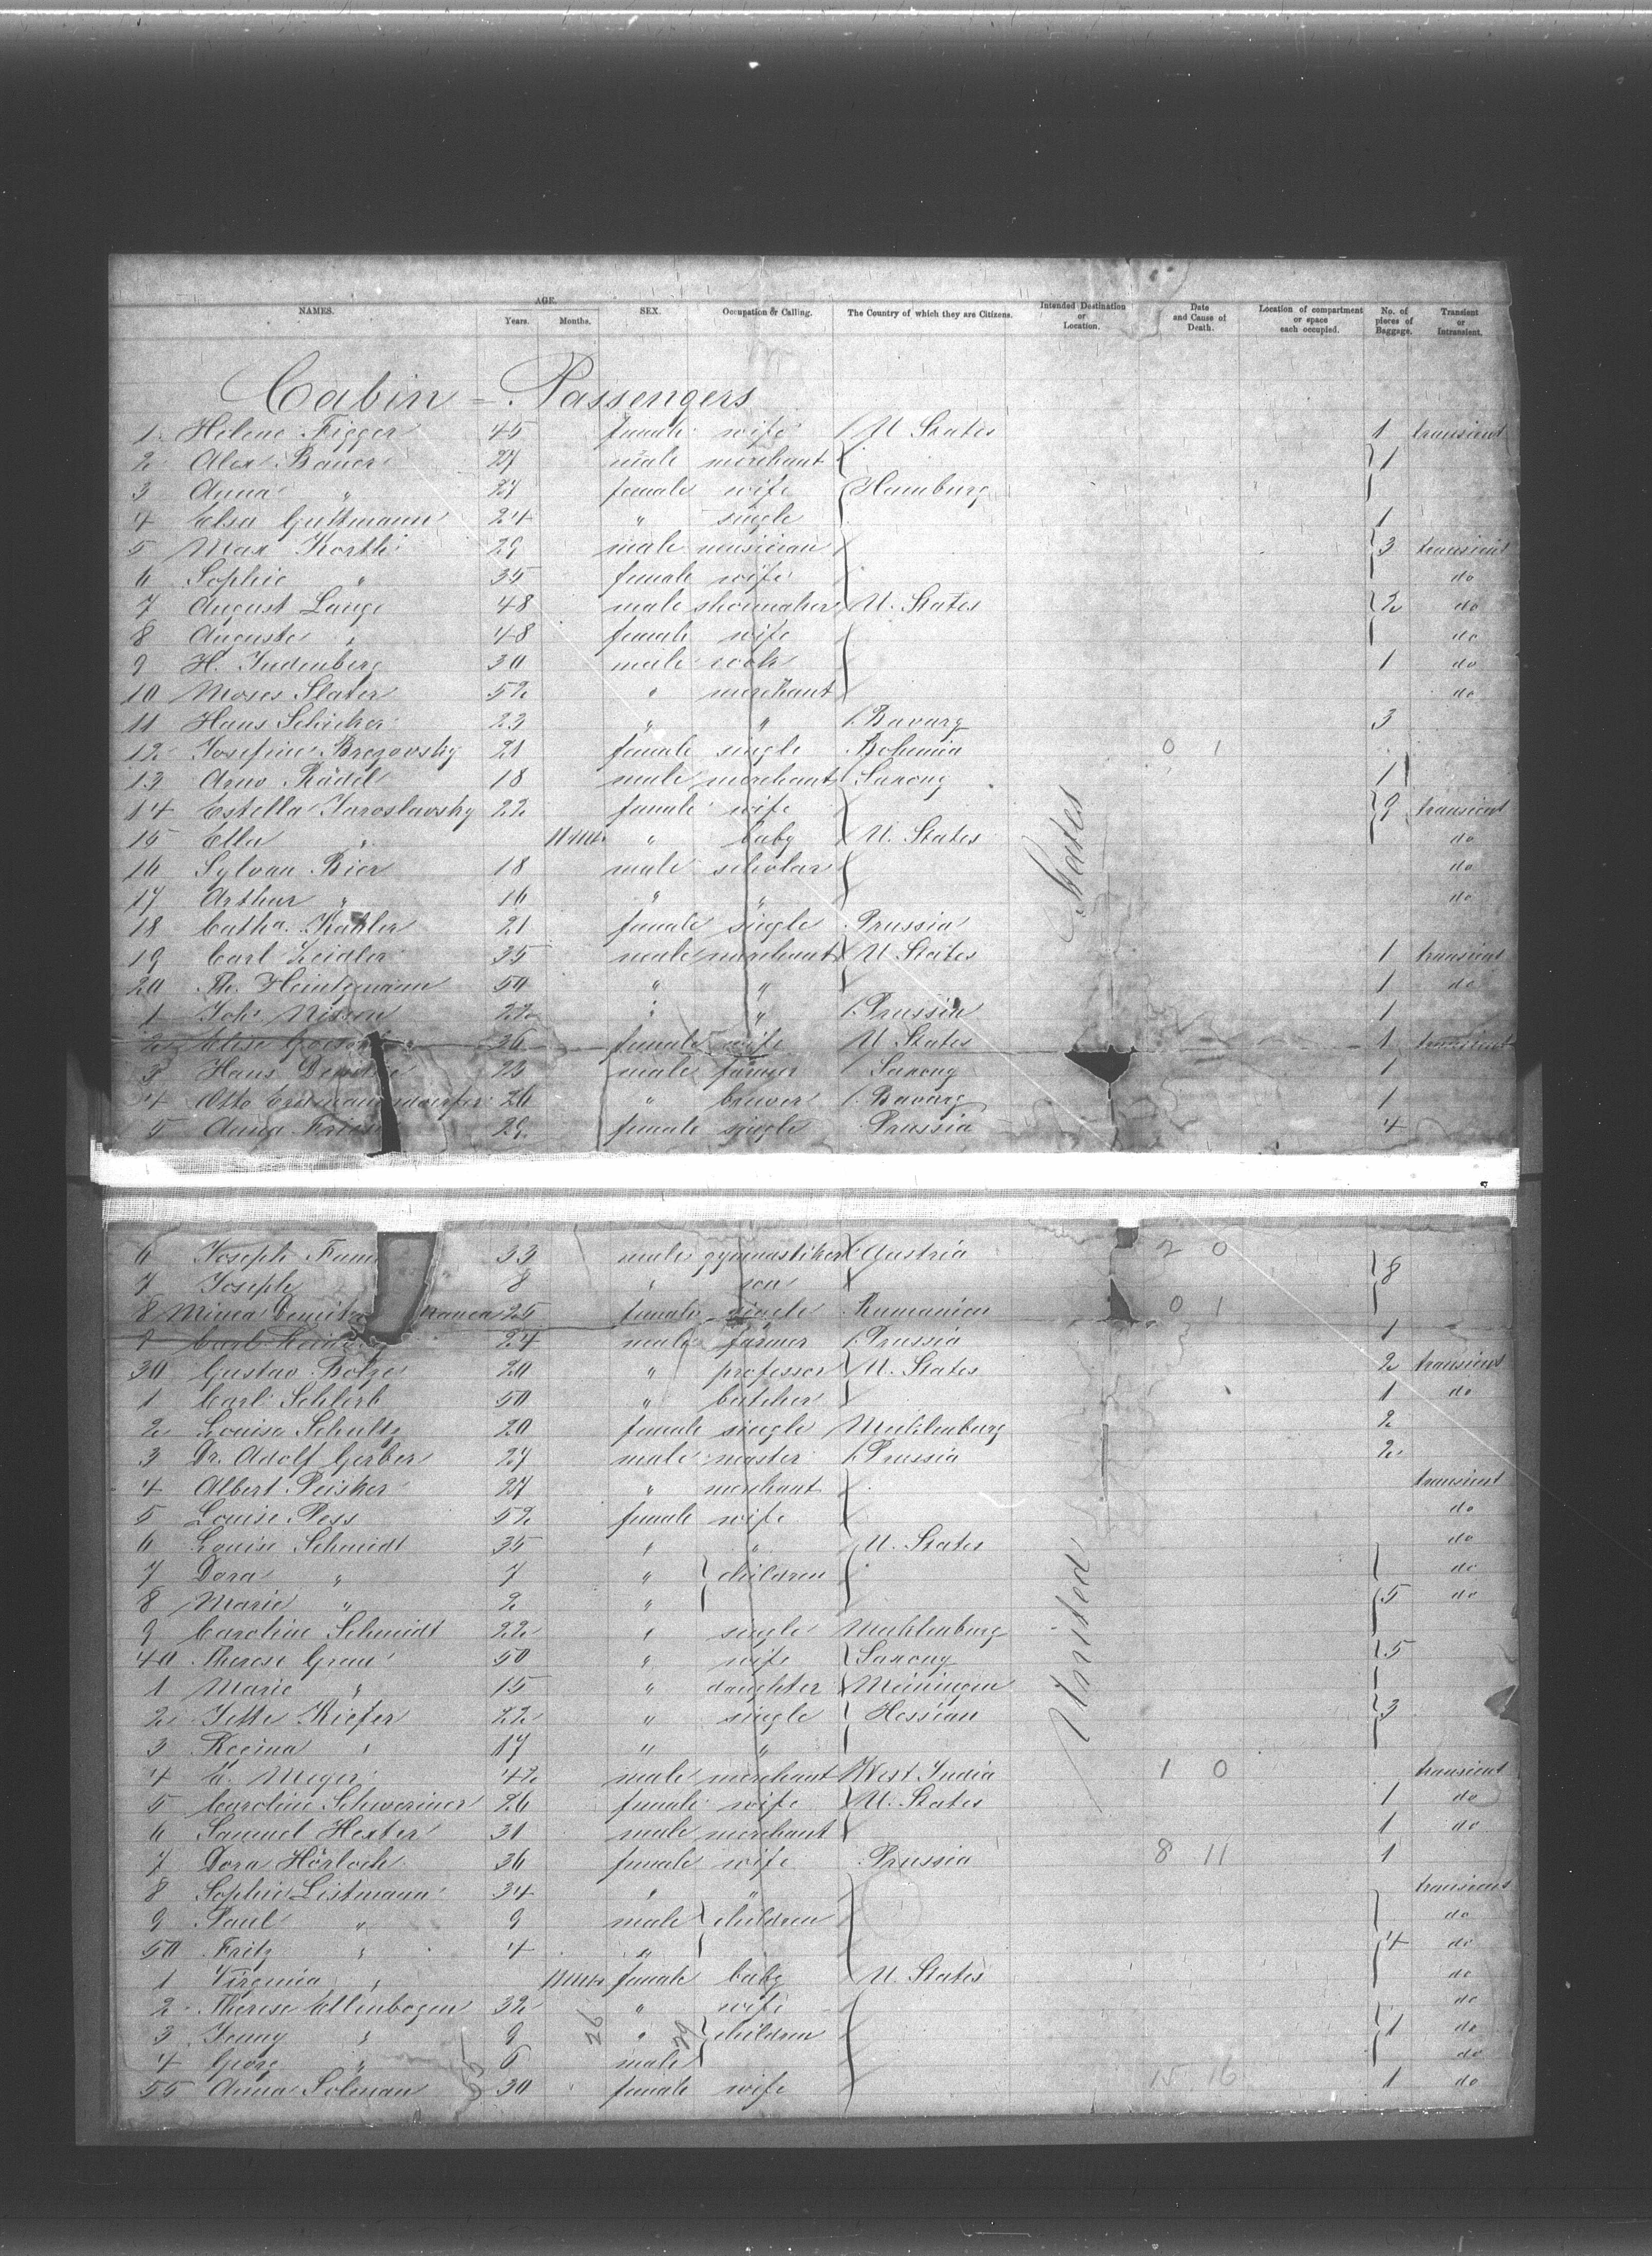 NAMES. AGE. Years. Months. SEX. Occupation or Calling. The Country of which they are Citizens. Intended Destination or Location. Date and Cause of Death. Location of compartment or space each occupied. No. of pieces of Baggage. Transient or Intransient.
Cabin - Passengers
1. Helene Figger 45 female wife U States 1 transient
2 Alex Bauer 27 male merchant 1
3 Anna " 27 female wife Hamburg
4 Elsa Guttmann 24 " single 1
5 Max Korth 29 male musician 3 transient
6 Sophie " 35 female wife do
7 August Lange 48 male shoemaker U. States 2 do
8 Auguste " 48 female wife do
9 H. Judenberg 30 male cook 1 do
10 Moses Slater 52 " merchant do
11 Hans Schicker 23 " " Bavarg 3
12 Josefine Brezovsky 21 female single Bohemia 0 1
13 Arno Rädel 18 male merchant Saxony 1
14 Estella Jaroslavsky 22 female wife 9 transient
15 Ella " 11 mts " baby U. States do
16 Sylvan Bier 18 male scholar do
17 Arthur " 16 " " do
18 Catha. Kahler 21 female single Prussia
19 Carl Zeidler 35 male merchant U States 1 transient
20 Th. Heintzmann 50 " " 1 do
1 Joh. Nissen 22 " " Prussia 1
2 Elise 36 female wife U States 1 transient
3 Hans 23 male farmer Saxony 1
4 Otto Erdmannsdoerfer 26 " brewer Bavarg 1
5 Anna 29 female single Prussia 4
6 Joseph 33 male gymnastiker Austria 2 0 8
7 Joseph 8 " son
8 Minca 25 female single Rumanien 0 1
9 Carl 24 male farmer Prussia 1
30 Gustav Bolze 20 " professor U. States 2 transient
1 Carl Schlerb 50 " butcher 1 do
2 Louise Schultz 20 female single Mecklenburg 2
3 Dr. Adolf Gerber 27 male master Prussia 2
4 Albert Peisker 27 " merchant transient
5 Louise Pess 52 female wife do
6 Louise Schmidt 35 " " U. States do
7 Dora " 7 " children do
8 Marie " 2 " 5 do
9 Caroline Schmidt 22 " single Mecklenburg
40 Therese Grau 50 " wife Saxony 5
1 Marie " 15 " daughter Meiningen
2 Jette Kiefer 22 " single Hessian 3
3 Recina " 17 " "
4 Meyer 42 male merchant West India 1 0 transient
5 Caroline Schweriner 26 female wife U. States 1 do
6 Samuel Hexter 31 male merchant 1 do
7 Dora Hörloch 36 female wife Prussia 8 11 1
8 Sophie Listmann 34 " " transient
9 Paul " 9 male children do
50 Fritz " 4 " 4 do
1 Virginia " 11 mts female baby U States do
2 Therese Ellenbogen 32 " wife do
3 Jenny " 9 " children 1 do
4 Georg " 6 male do
55 Anna Solman 30 female wife 15 16 1 do
United States
55 26 29